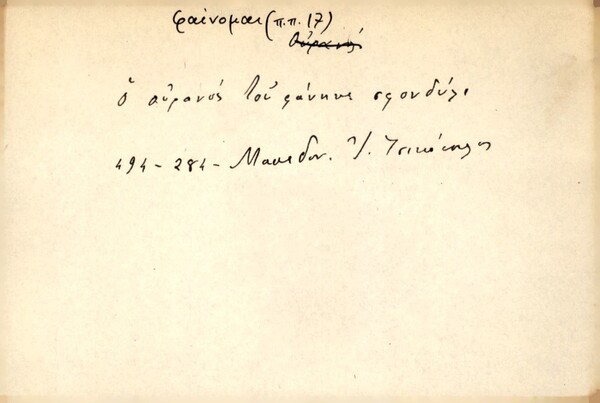 φαίνομαι (π.π. 17)
οὐρανός
ὁ οὐρανός τοῦ φάνηκε σφονδύλι
494 - 284 - Μακεδον. Ἰ. Τσικόπουλος